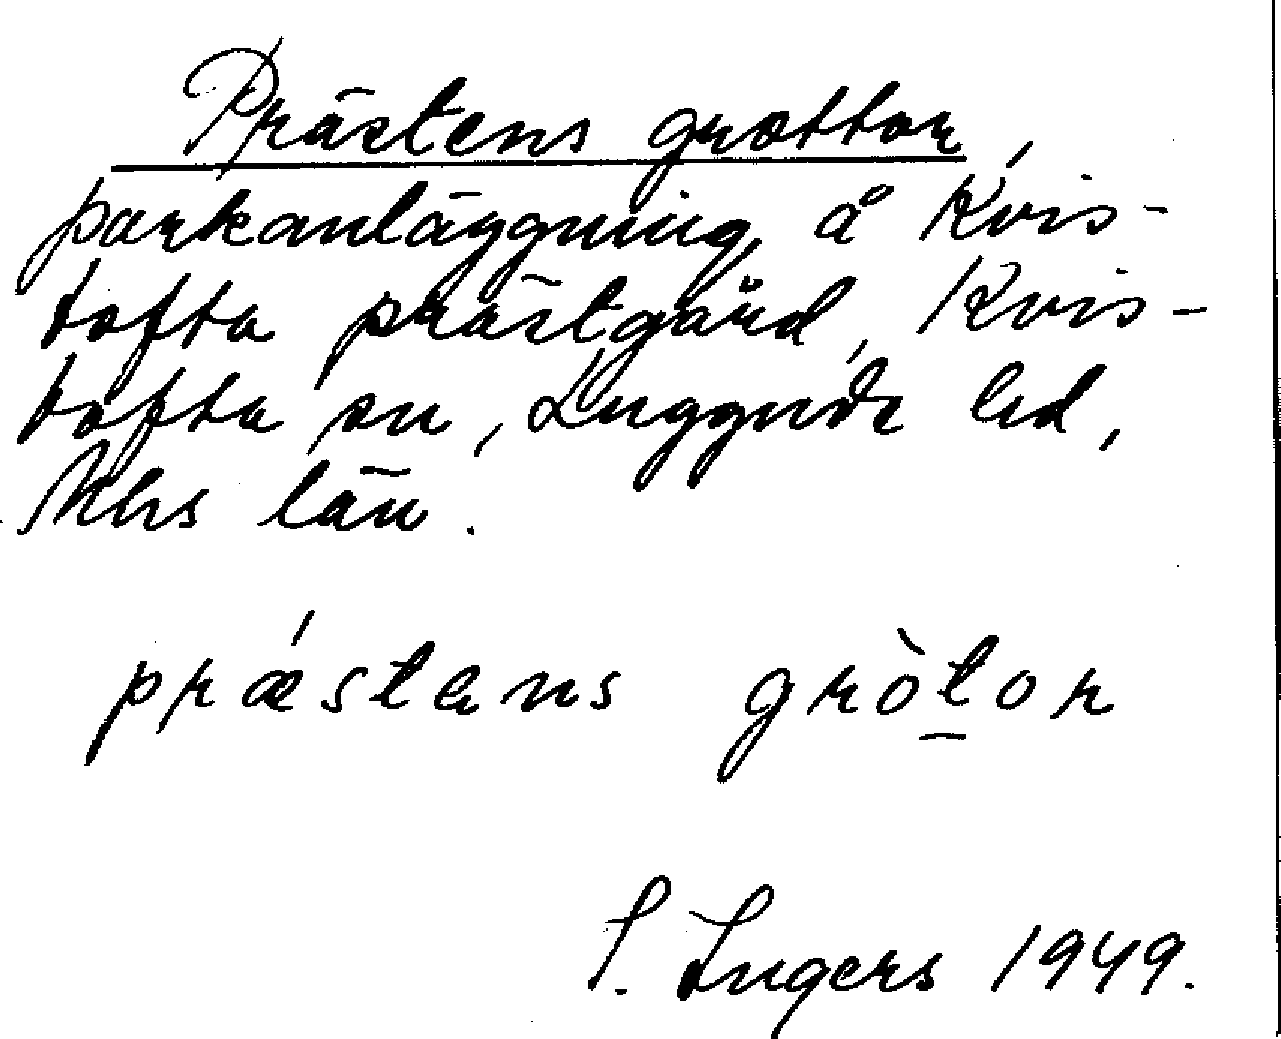 Prästens grottor,
parkanläggning å Kvis-
tofta prästgård, Kvis-
tofta sn, Luggude hd,
Mhs län.
prǽstens gròt̲or
I. Ingers 1949.